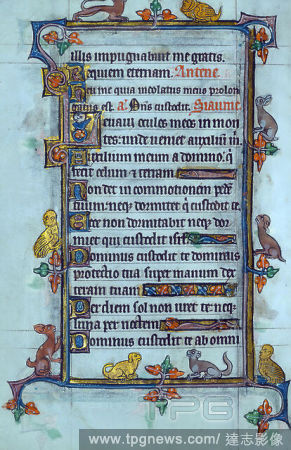 illis impugnabant me gratis.
Requiem eternam. Antene.
Heu me quia incolatus meus prolon
gatus est. a. Dns custodit. Psaume.
Levavi oculos meos in mon
tes: unde veniet auxiliū m.
Auxilium meum a domino: q̄
fecit celum et terram
Non det in commotionem pedē
tuum: neqz dormitet q̄ custodit te.
Ecce non dormitabit neqz dor
miet qui custodit isrl
Dominus custodit te dominus
protectio tua super manum dex
teram tuam
Per diem sol non uret te: neqz
luna per noctem
Dominus custodit te ab omni
TPG
www.tpgnews.com / 達志影像